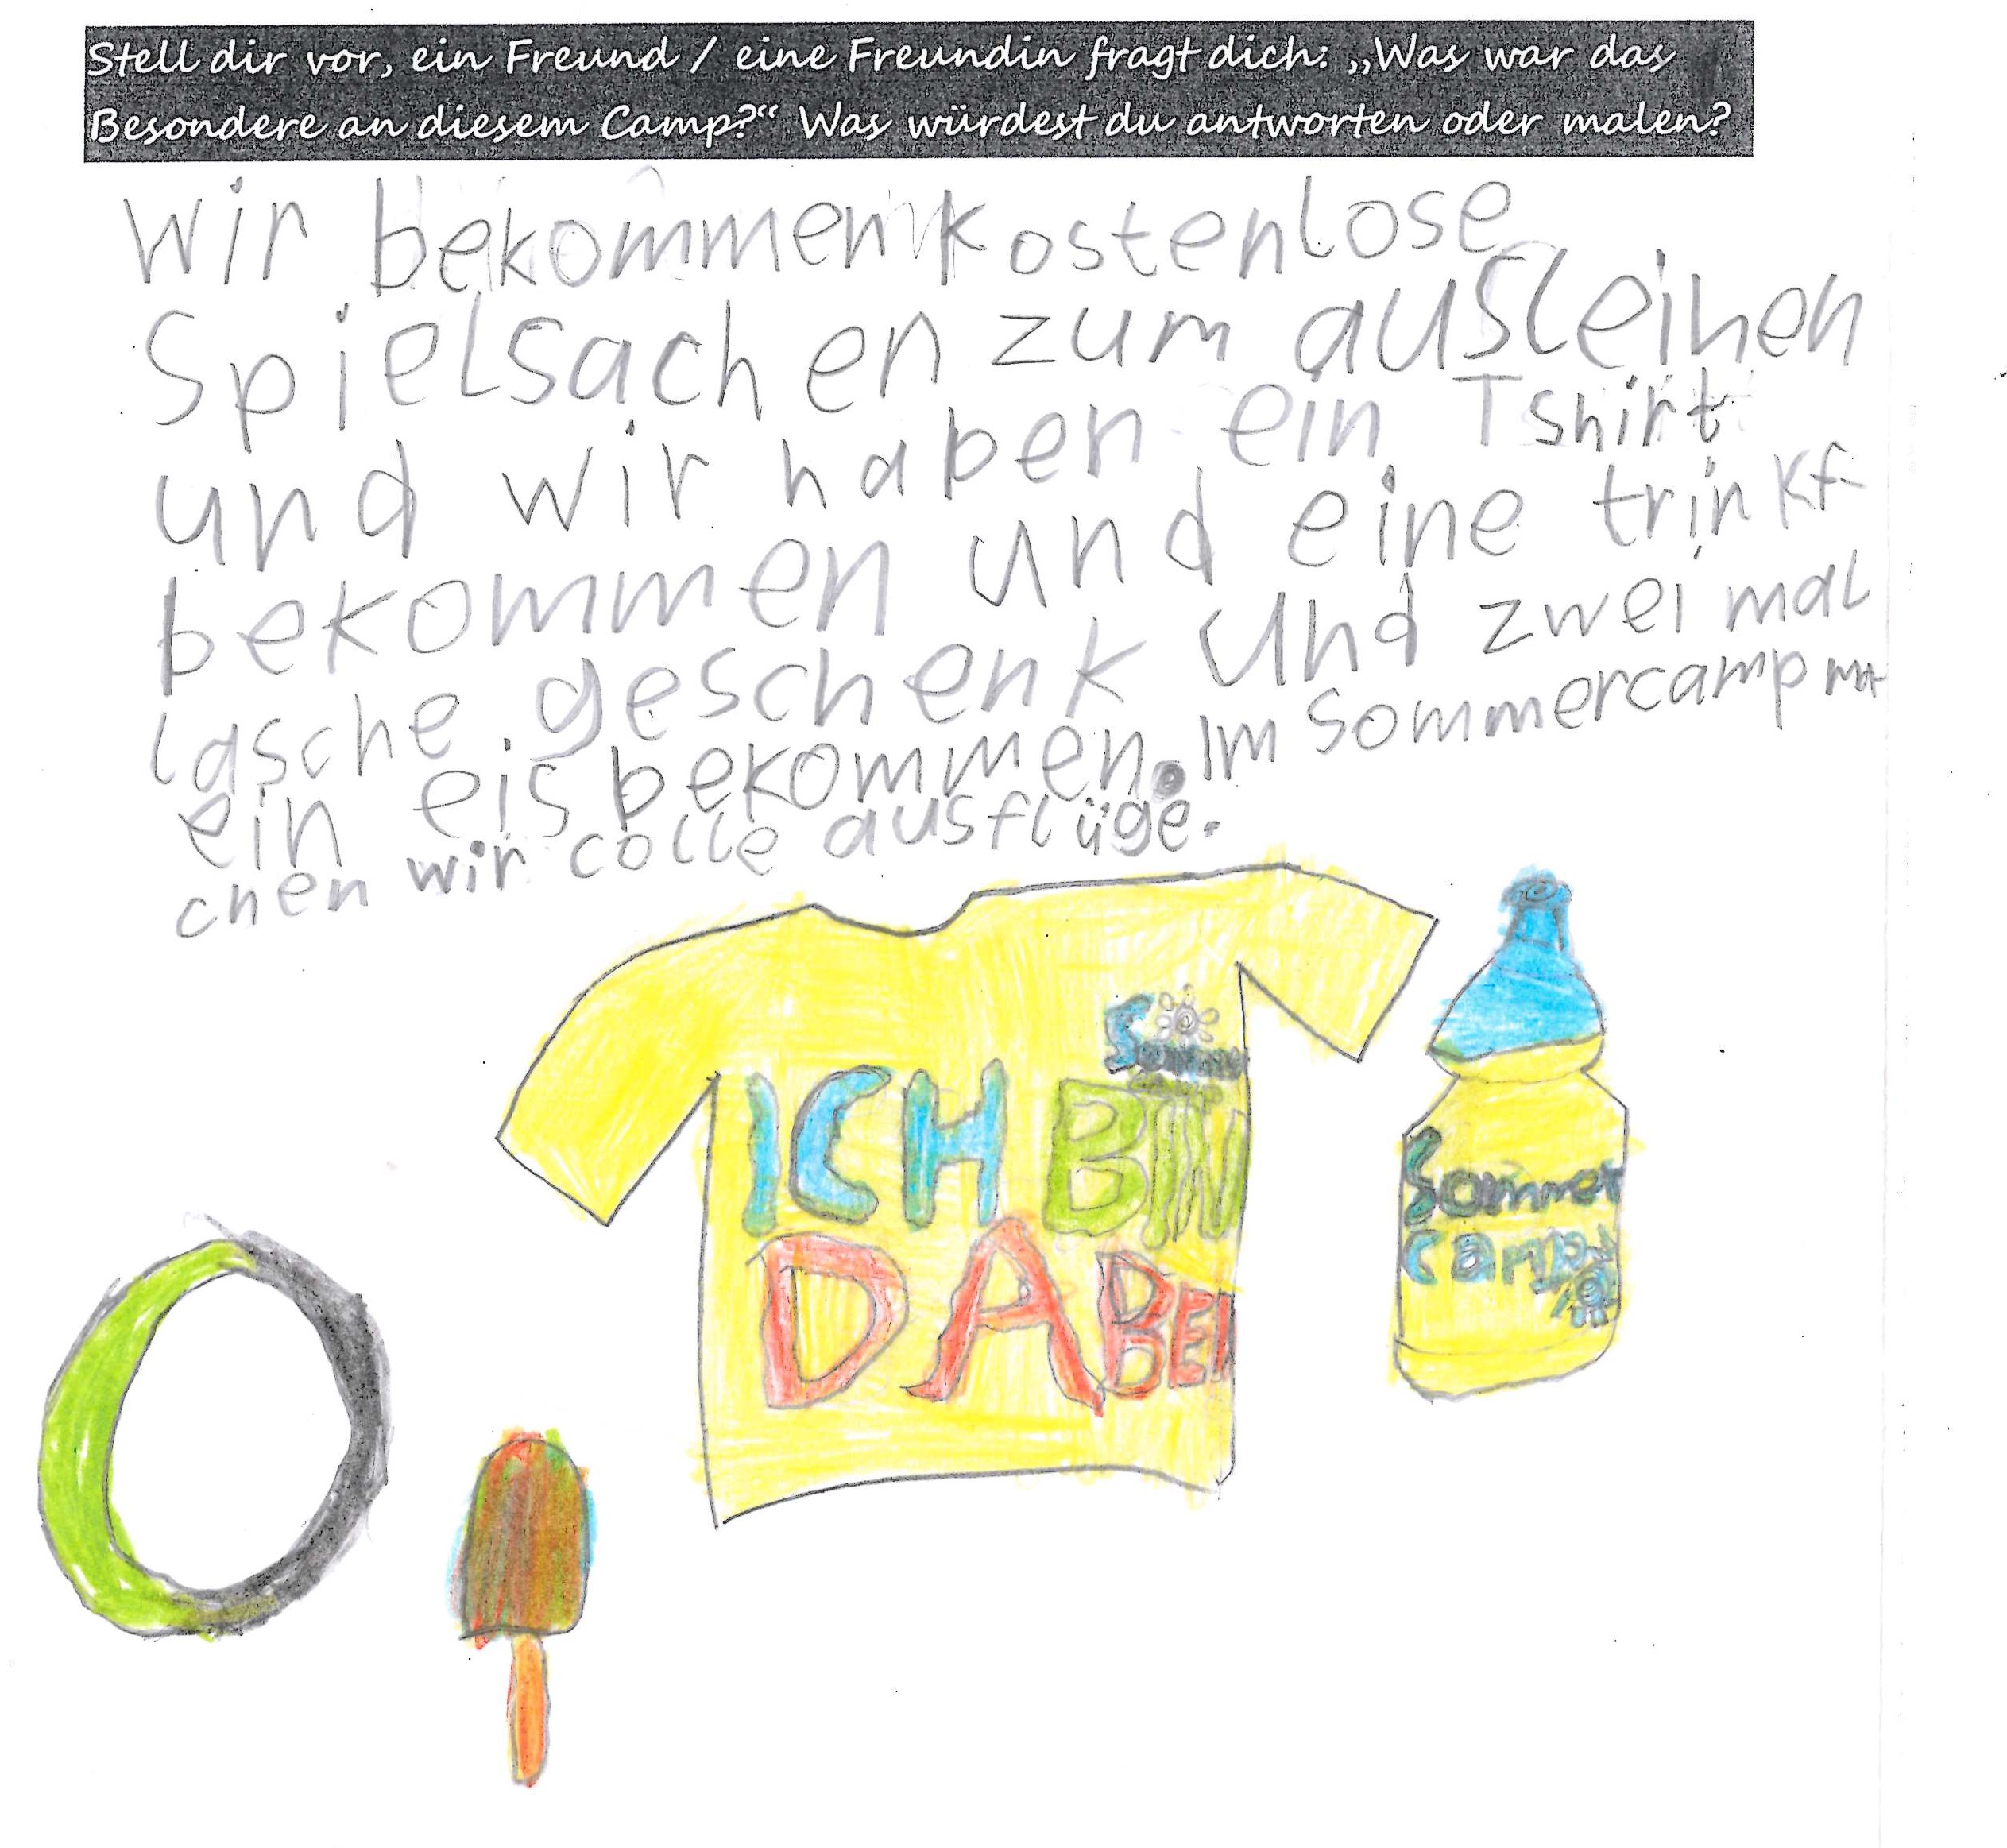 Stell dir vor, ein Freund / eine Freundin fragt dich: „Was war das
Besondere an diesem Camp?“ Was würdest du antworten oder malen?
Wir bekommen kostenlose
Spielsachen zum ausleihen
und wir haben ein Tshirt
bekommen und eine trinkf-
lasche geschenk und zwei mal
ein eis bekommen. Im Sommercamp ma-
chen wir colle ausflüge.
Sommer
ICH BIN
DABEI
Sommer
camp